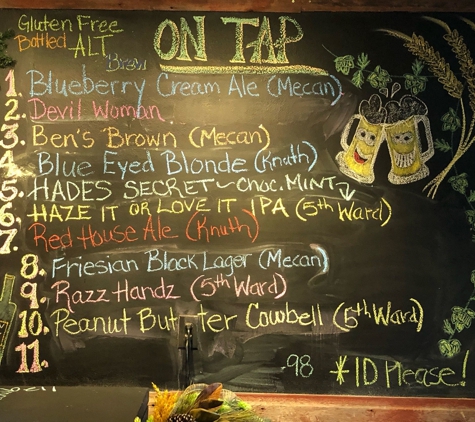 Gluten Free
Bottled ALT
Brew
ON TAP
1. Blueberry Cream Ale (Mecan)
2. Devil Woman
3. Ben's Brown (Mecan)
4. Blue Eyed Blonde (Knuth)
5. HADES SECRET~Choc. MINT
6. HAZE IT OR LOVE IT IPA (5th Ward)
7. Red House Ale (Knuth)
8. Friesian Black Lager (Mecan)
9. Razz Handz (5th Ward)
10. Peanut Butter Cowbell (5th Ward)
11.
.98 *ID Please!